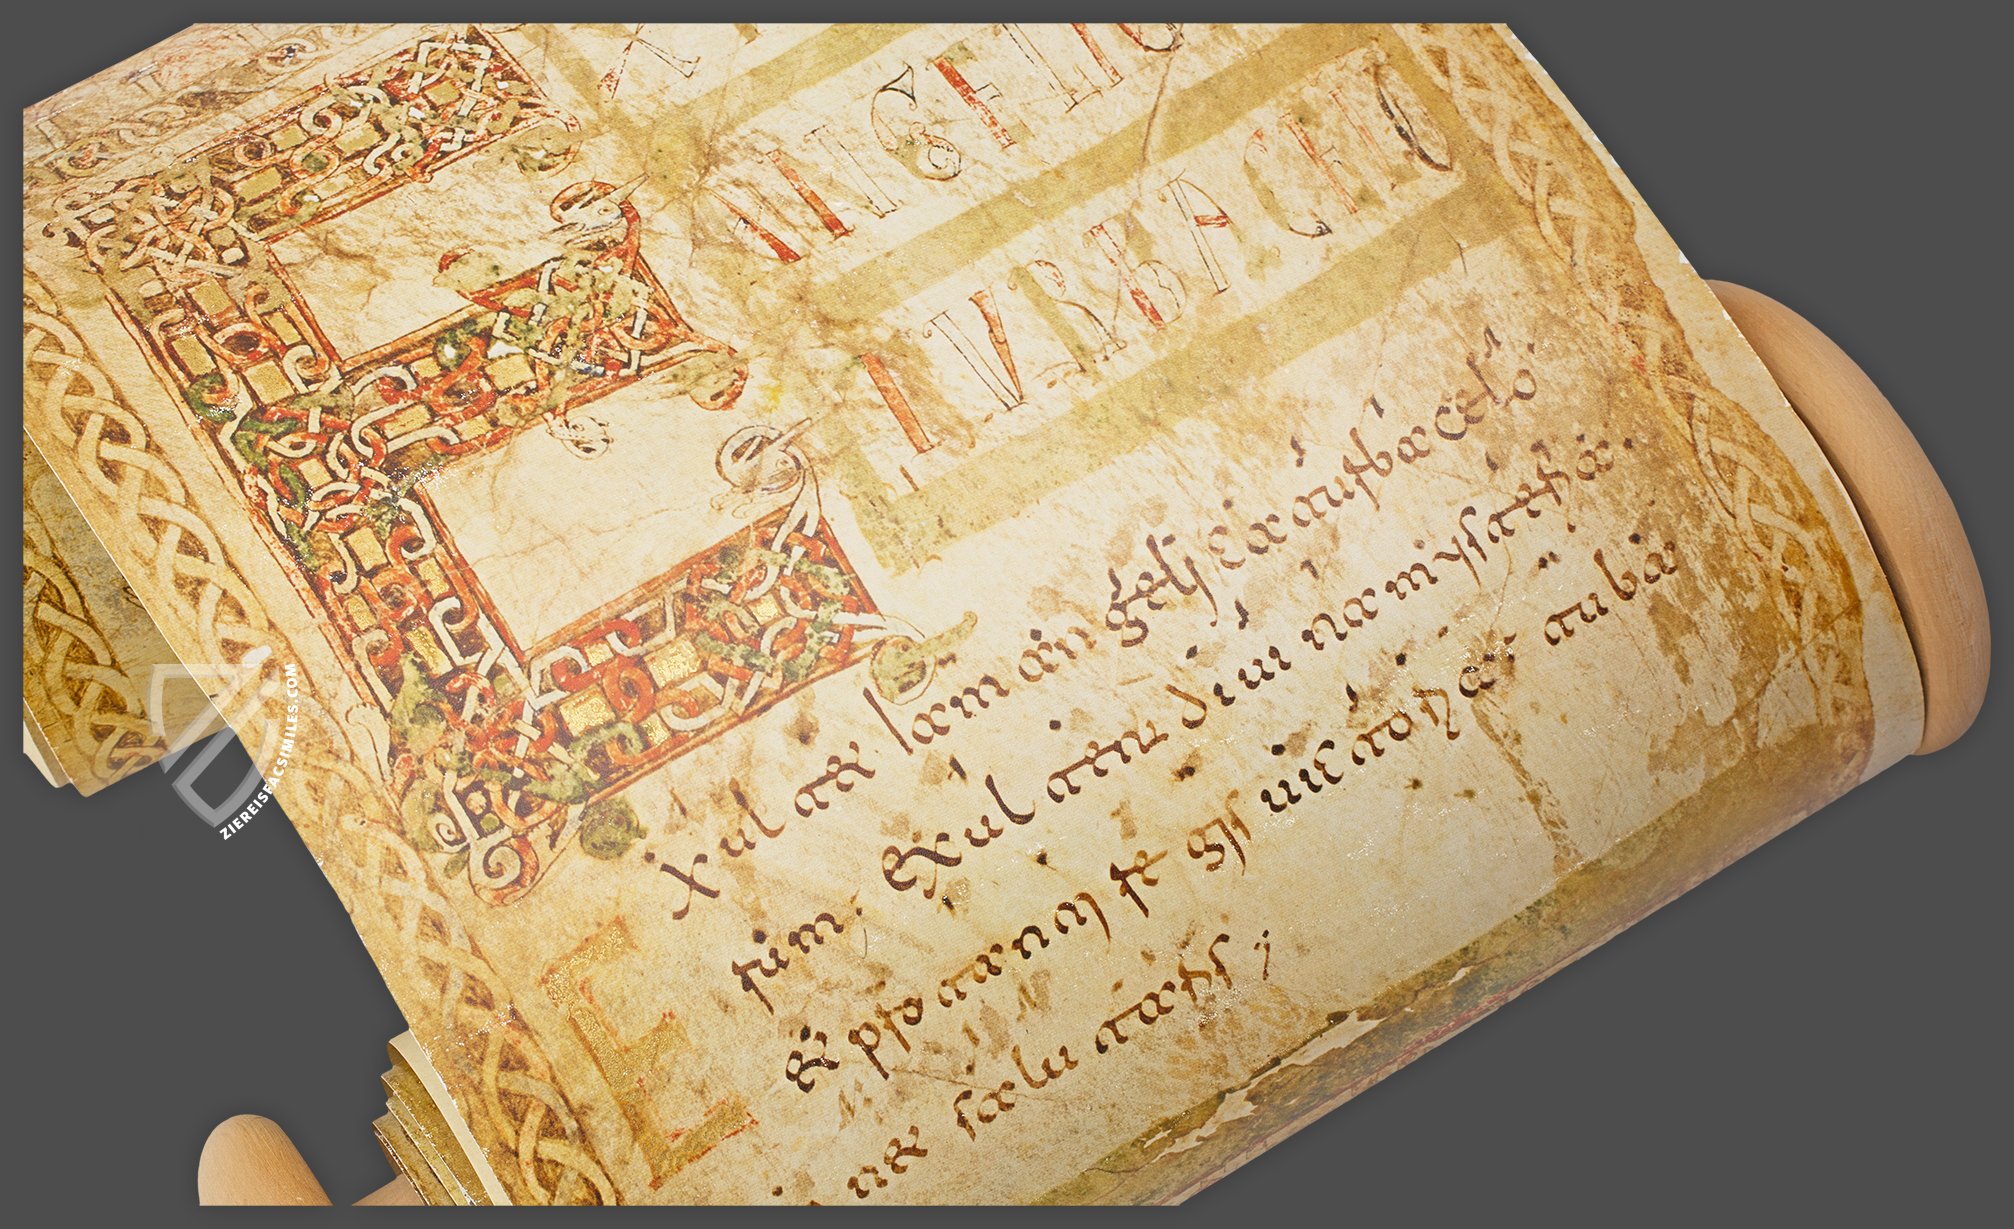 ANGELIC
TURBA CELO
Exultet iam angelica turba celo
rum; exultent diuina mysteria.
E
& pro regis uictoria tuba
net salutaris;
ZIEREISFACSIMILES.COM